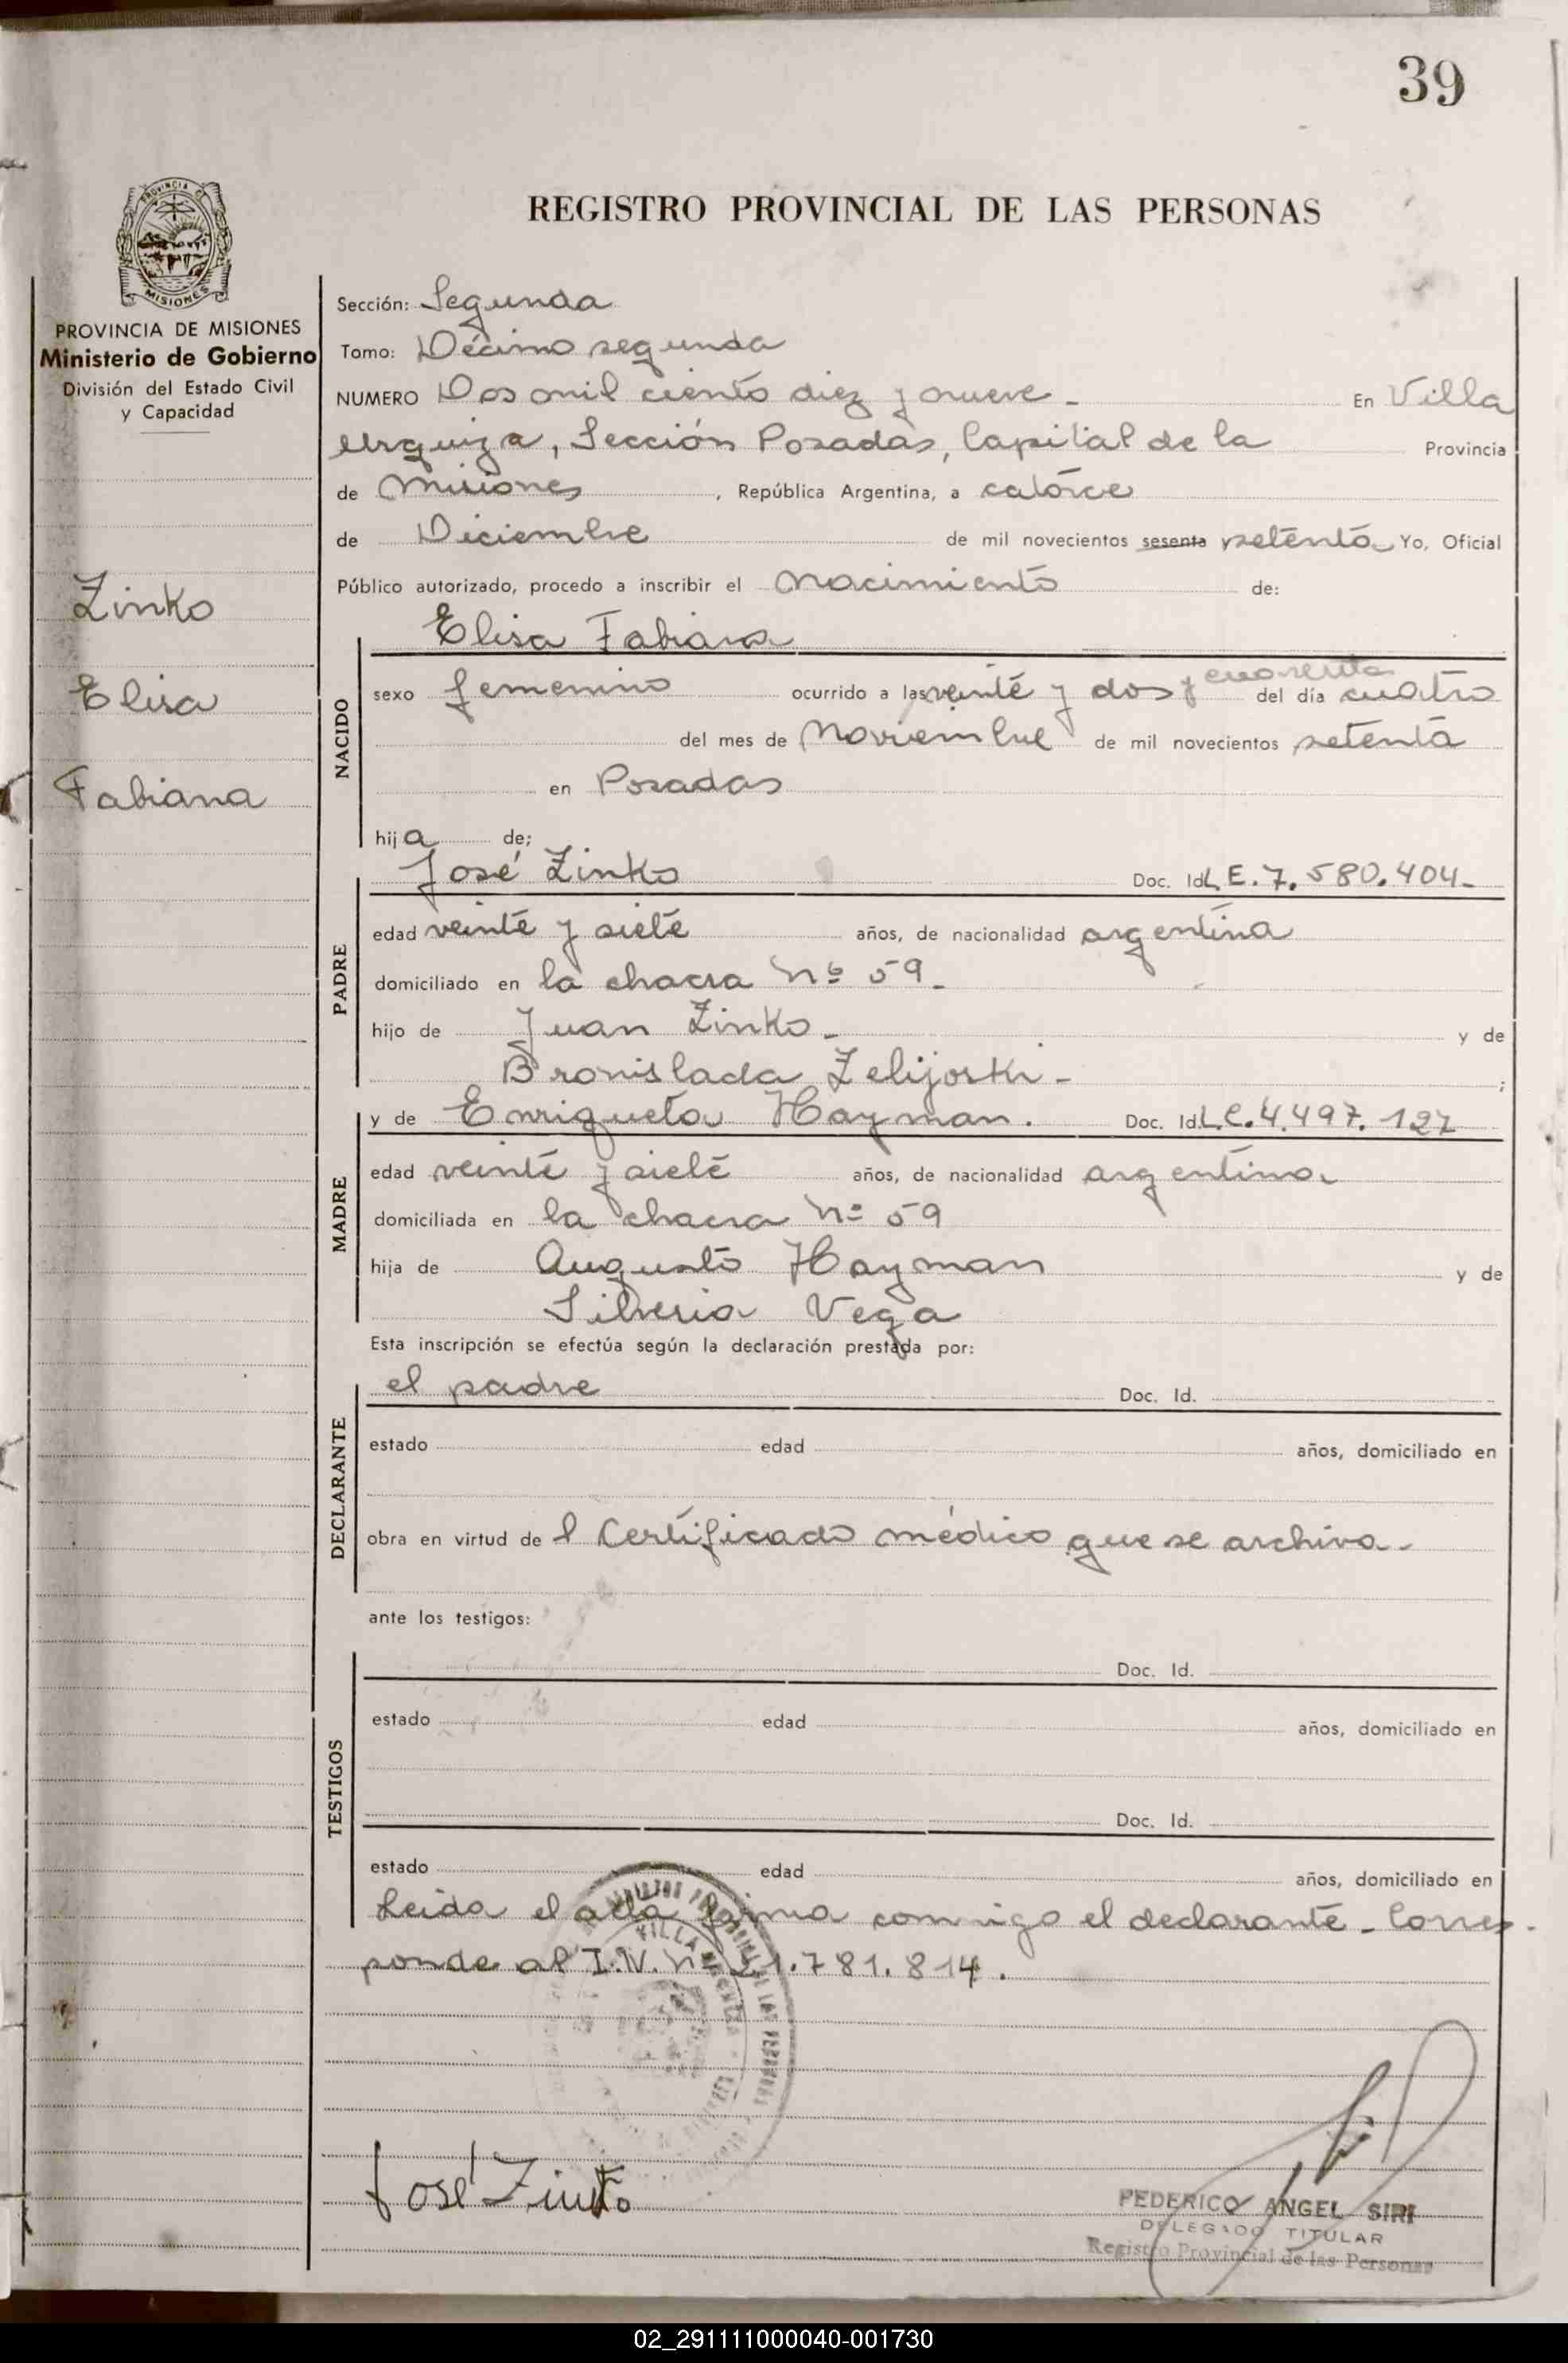 39
PROVINCIA DE
MISIONES
REGISTRO PROVINCIAL DE LAS PERSONAS
PROVINCIA DE MISIONES
Ministerio de Gobierno
División del Estado Civil
y Capacidad
Zinko
Elisa
Fabiana
Sección: Segunda
Tomo: Décimo segunda
NUMERO Dos mil ciento diez y nueve - En Villa
Urquiza, Sección Posadas, Capital de la Provincia
de Misiones, República Argentina, a catorce
de Diciembre de mil novecientos sesenta setenta Yo, Oficial
Público autorizado, procedo a inscribir el nacimiento de:
Elisa Fabiana
NACIDO
sexo femenino ocurrido a las veinte y dos y cuarenta del día cuatro
del mes de Noviembre de mil novecientos setenta
en Posadas
hija de;
José Zinko Doc. Id. L.E. 7.580.404-
PADRE
edad veinte y siete años, de nacionalidad argentina
domiciliado en la chacra Nº 59-
hijo de Juan Zinko- y de
Bronislada Zelijoski- ;
y de Enriqueta Hayman. Doc. Id. L.C. 4.497.127
MADRE
edad veinte y siete años, de nacionalidad argentina
domiciliada en la chacra Nº 59
hija de Augusto Hayman y de
Silveria Vega
Esta inscripción se efectúa según la declaración prestada por:
el padre Doc. Id.
DECLARANTE
estado edad años, domiciliado en
obra en virtud de l Certificado médico que se archiva-
ante los testigos:
Doc. Id.
TESTIGOS
estado edad años, domiciliado en
Doc. Id.
estado edad años, domiciliado en
Leida el acta firma conmigo el declarante - Corres-
ponde al I.N. Nº 21.781.814.
José Zinko
FEDERICO ANGEL SIRI
DELEGADO TITULAR
Registro Provincial de las Personas
02_291111000040-001730